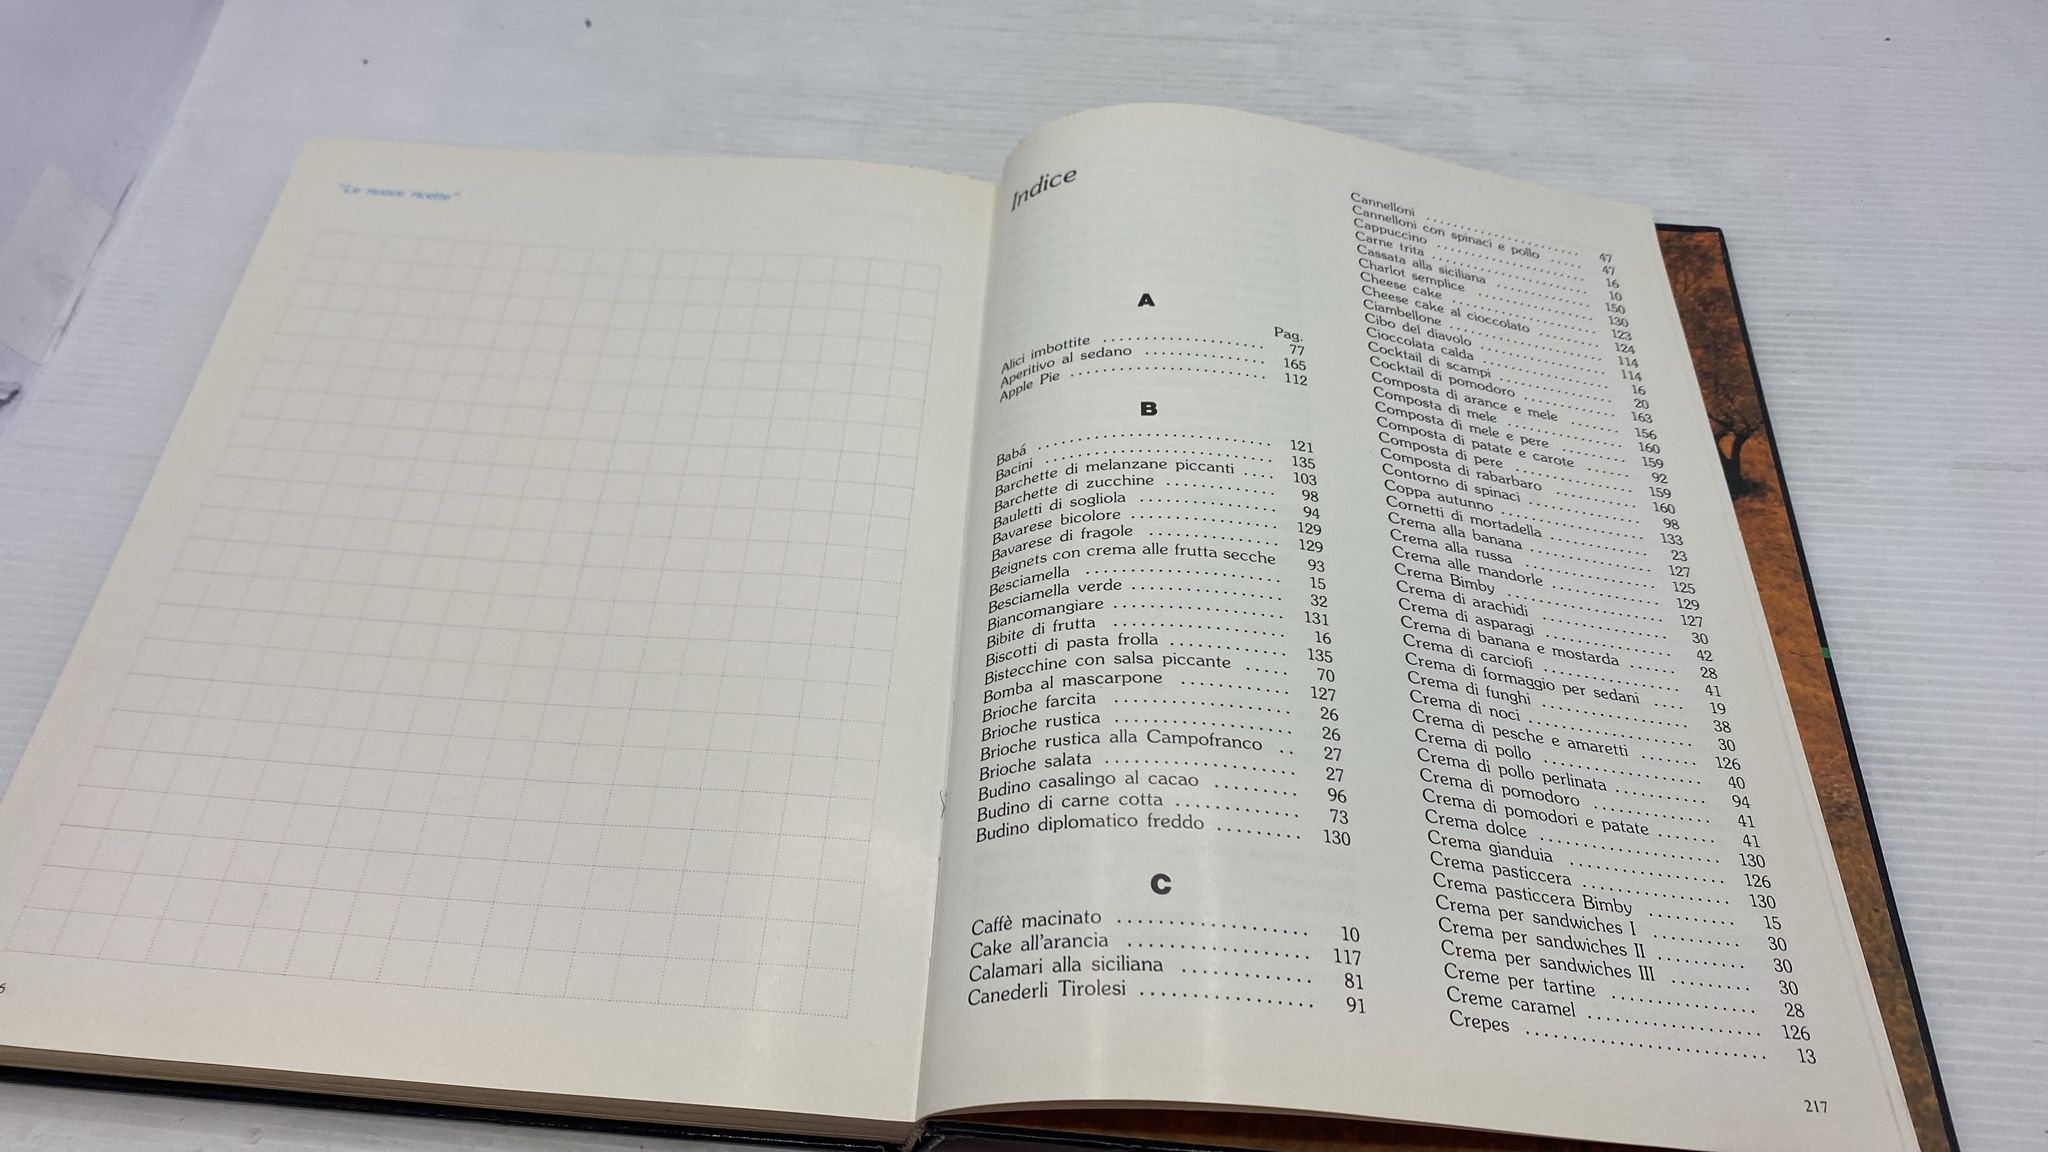 "Le nuove ricette"
Indice
A
Pag.
Alici imbottite .................... 77
Aperitivo al sedano ............... 165
Apple Pie ......................... 112
B
Babá .............................. 121
Bacini ............................ 135
Barchette di melanzane piccanti .... 103
Barchette di zucchine ............. 98
Bauletti di sogliola .............. 94
Bavarese bicolore ................. 129
Bavarese di fragole ............... 129
Beignets con crema alle frutta secche 93
Besciamella ....................... 15
Besciamella verde ................. 32
Biancomangiare .................... 131
Bibite di frutta .................. 16
Biscotti di pasta frolla .......... 135
Bistecchine con salsa piccante ..... 70
Bomba al mascarpone ............... 127
Brioche farcita ................... 26
Brioche rustica ................... 26
Brioche rustica alla Campofranco .. 27
Brioche salata .................... 27
Budino casalingo al cacao ......... 96
Budino di carne cotta ............. 73
Budino diplomatico freddo ......... 130
C
Caffè macinato .................... 10
Cake all'arancia .................. 117
Calamari alla siciliana ........... 81
Canederli Tirolesi ................ 91
Cannelloni ........................ 47
Cannelloni con spinaci e pollo ..... 47
Cappuccino ........................ 16
Carne trita ....................... 10
Cassata alla siciliana ............ 150
Charlot semplice .................. 130
Cheese cake ....................... 123
Cheese cake al cioccolato ......... 124
Ciambellone ....................... 114
Cibo del diavolo .................. 114
Cioccolata calda .................. 16
Cocktail di scampi ................ 20
Cocktail di pomodoro .............. 163
Composta di arance e mele ......... 156
Composta di mele .................. 160
Composta di mele e pere ........... 159
Composta di patate e carote ....... 92
Composta di pere .................. 159
Composta di rabarbaro ............. 160
Contorno di spinaci ............... 98
Coppa autunno ..................... 133
Cornetti di mortadella ............ 23
Crema alla banana ................. 127
Crema alla russa .................. 125
Crema alle mandorle ............... 129
Crema Bimby ....................... 127
Crema di arachidi ................. 30
Crema di asparagi ................. 42
Crema di banana e mostarda ........ 28
Crema di carciofi ................. 41
Crema di formaggio per sedani ..... 19
Crema di funghi ................... 38
Crema di noci ..................... 30
Crema di pesche e amaretti ........ 126
Crema di pollo .................... 40
Crema di pollo perlinata .......... 94
Crema di pomodoro ................. 41
Crema di pomodori e patate ........ 41
Crema dolce ....................... 130
Crema gianduia .................... 126
Crema pasticcera .................. 130
Crema pasticcera Bimby ............ 15
Crema per sandwiches I ............ 30
Crema per sandwiches II ........... 30
Crema per sandwiches III .......... 30
Creme per tartine ................. 28
Creme caramel ..................... 126
Crepes ............................ 13
217